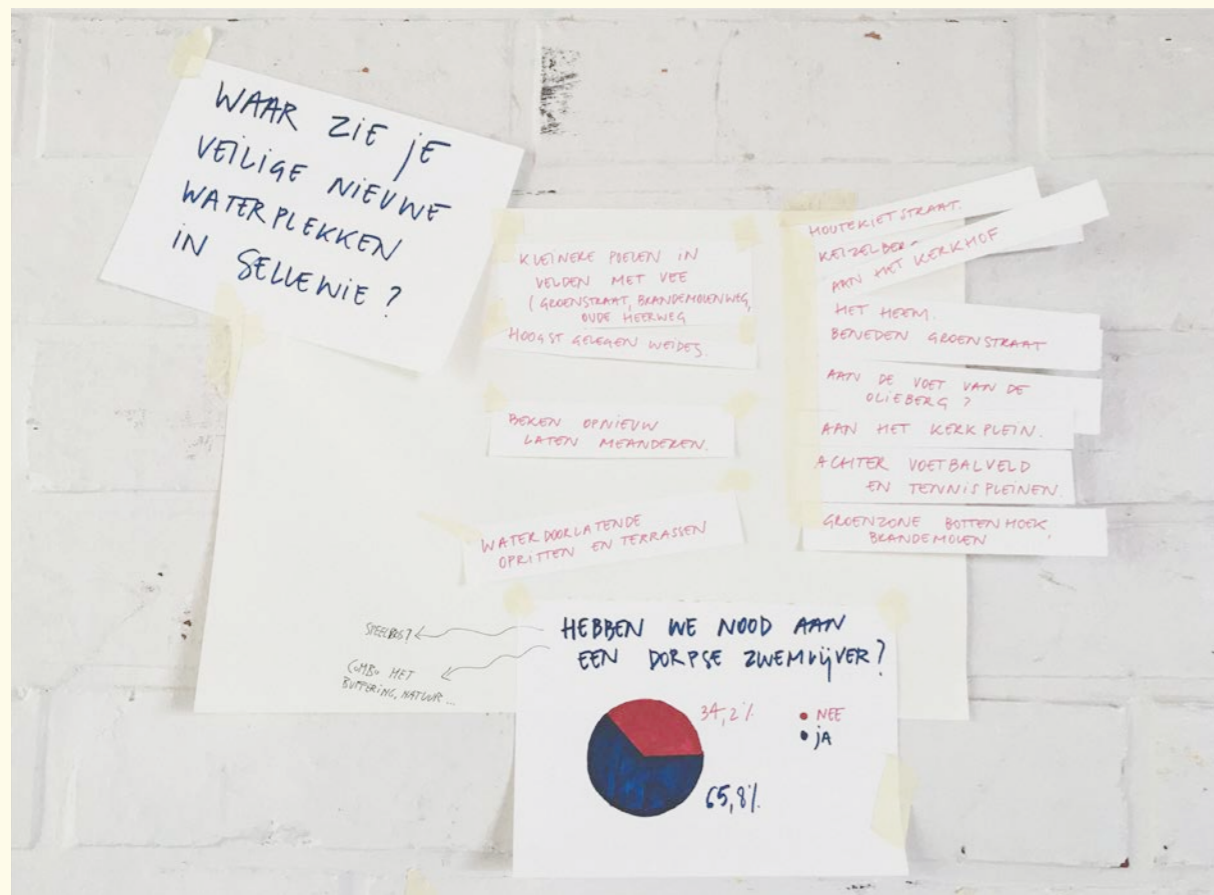 WAAR ZIE JE
VEILIGE NIEUWE
WATERPLEKKEN
IN SELLEWIE ?
KLEINERE POELEN IN
VELDEN MET VEE
(GROENSTRAAT, BRANDEMOLENWEG,
OUDE HEERWEG
HOOGST GELEGEN WEIDES.
BEKEN OPNIEUW
LATEN MEANDEREN.
WATERDOORLATENDE
OPRITTEN EN TERRASSEN
HOUTEKIETSTRAAT.
KEIZELBER
AAN HET KERKHOF
HET HEEM.
BENEDEN GROENSTRAAT
AAN DE VOET VAN DE
OLIEBERG ?
AAN HET KERKPLEIN.
ACHTER VOETBALVELD
EN TENNISPLEINEN.
GROENZONE BOTTENHOEK,
BRANDEMOLEN
SPEELBOS?
COMBO MET
BUFFERING, NATUUR ...
HEBBEN WE NOOD AAN
EEN DORPSE ZWEMVIJVER?
34,2%
• NEE
• JA
65,8%